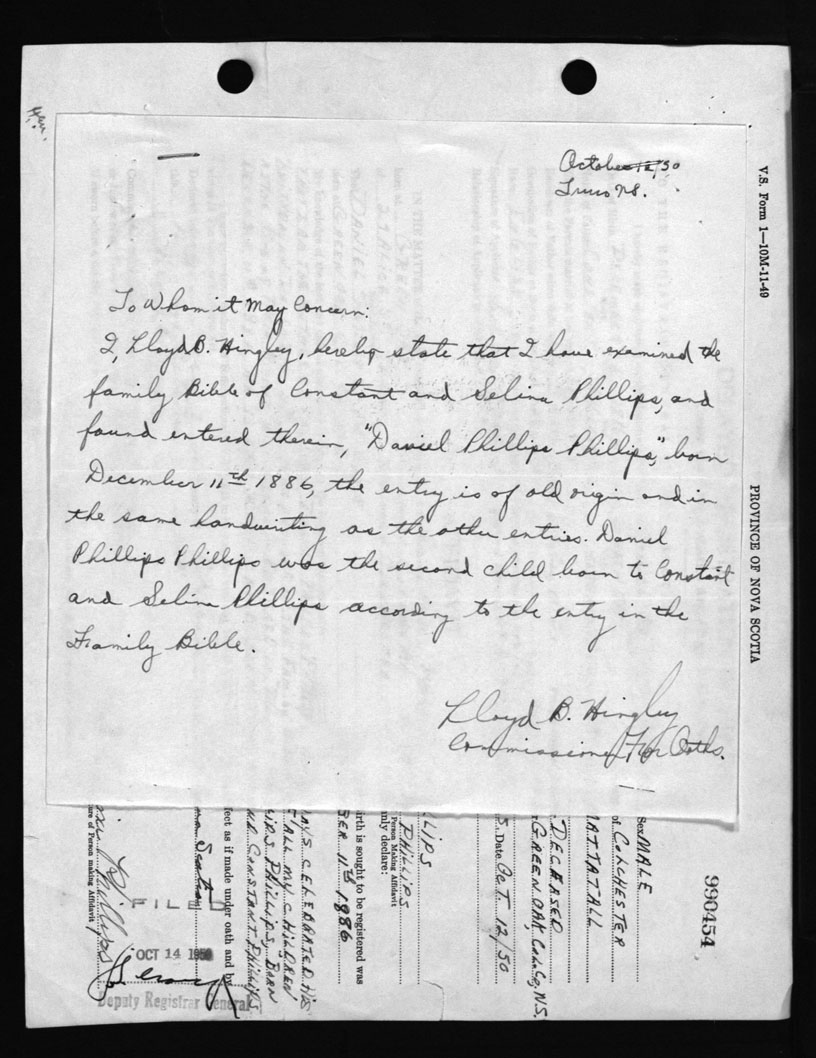 October 12/50
Truro NS.
To Whom it May Concern:
I, Lloyd B. Hingley, hereby state that I have examined the
family Bible of Constant and Selina Phillips, and
found entered therein, "Daniel Phillips Phillips", born
December 11th 1886, the entry is of old origin and in
the same handwriting as the other entries. Daniel
Phillips Phillips was the second child born to Constant
and Selina Phillips according to the entry in the
Family Bible.
Lloyd B. Hingley
Commissioner For Oaths.
V.S. Form 1—10M-11-49
PROVINCE OF NOVA SCOTIA
990454
Sex MALE
of COLCHESTER
MATTATALL
DECEASED
GREEN OAK, Col. Co, N.S.
Date OCT. 12/50
LLIPS
PHILLIPS
Person Making Affidavit
nly declare:
irth is sought to be registered was
BER 11th 1886
AYS CELEBRATED HIS
ALL MY CHILDREN
PHILLIPS, BORN
CONSTANT PHILLIPS
fect as if made under oath and by
Phillips
ure of Person making Affidavit
FILED
OCT 14 1950
Deputy Registrar General